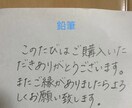 鉛筆
このたびはご購入いた
だきありがとうございます。
またご縁がありましたらよろ
しくお願い致します。